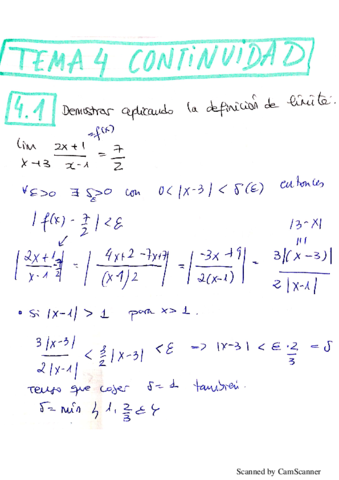 TEMA 4 CONTINUIDAD
4.1 Demostrar aplicando la definición de límite:
=f(x)
lim x→3 (2x+1)/(x-1) = 7/2
∀ε>0 ∃ δ>0 con 0<|x-3| < δ(ε) entonces
|f(x) - 7/2| < ε
|3-x|
|(2x+1)/(x-1) - 7/2| = |(4x+2-7x+7)/((x-1)2)| = |(-3x+9)/(2(x-1))| = 3|(x-3)|/(2|x-1|)
• Si |x-1| > 1 para x>1.
3|x-3|/(2|x-1|) < 3/2 |x-3| < ε => |x-3| < ε·2/3 = δ
Tengo que coger δ=1 también.
δ= min { 1, 2/3 ε }
Scanned by CamScanner